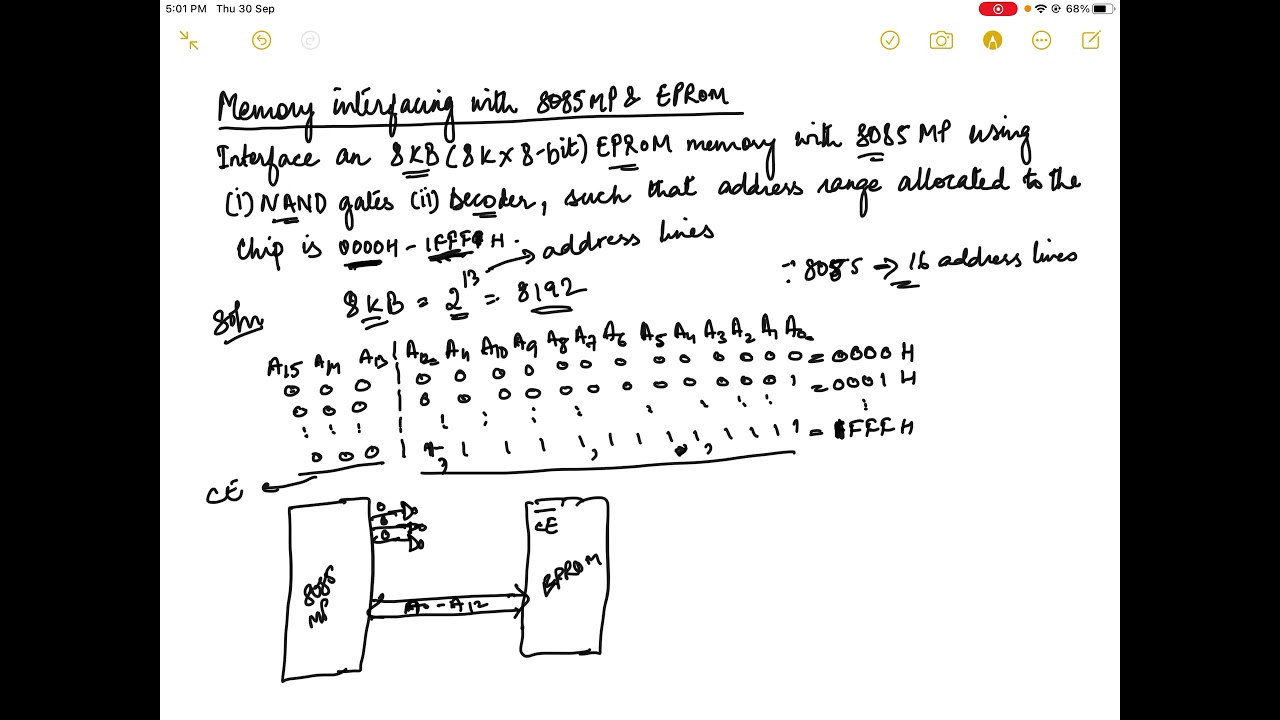 5:01 PM Thu 30 Sep 68%
Memory interfacing with 8085 MP & EPROM
Interface an 8KB (8K x 8-bit) EPROM memory with 8085 MP using
(i) NAND gates (ii) Decoder, such that address range allocated to the
chip is 0000H - 1FFFH.
address lines
∵ 8085 → 16 address lines
Soln 8KB = 2^13 = 8192
A15 A14 A13 | A12 A11 A10 A9 A8 A7 A6 A5 A4 A3 A2 A1 A0
0 0 0 | 0 0 0 0 0 0 0 0 0 0 0 0 0 = 0000 H
0 0 0 | 0 0 0 0 0 0 0 0 0 0 0 0 1 = 0001 H
0 0 0 | 1, 1 1 1 1, 1 1 1 1, 1 1 1 1 = 1FFF H
CE
0
0
0
CE
8085
MP
EPROM
A0 - A12